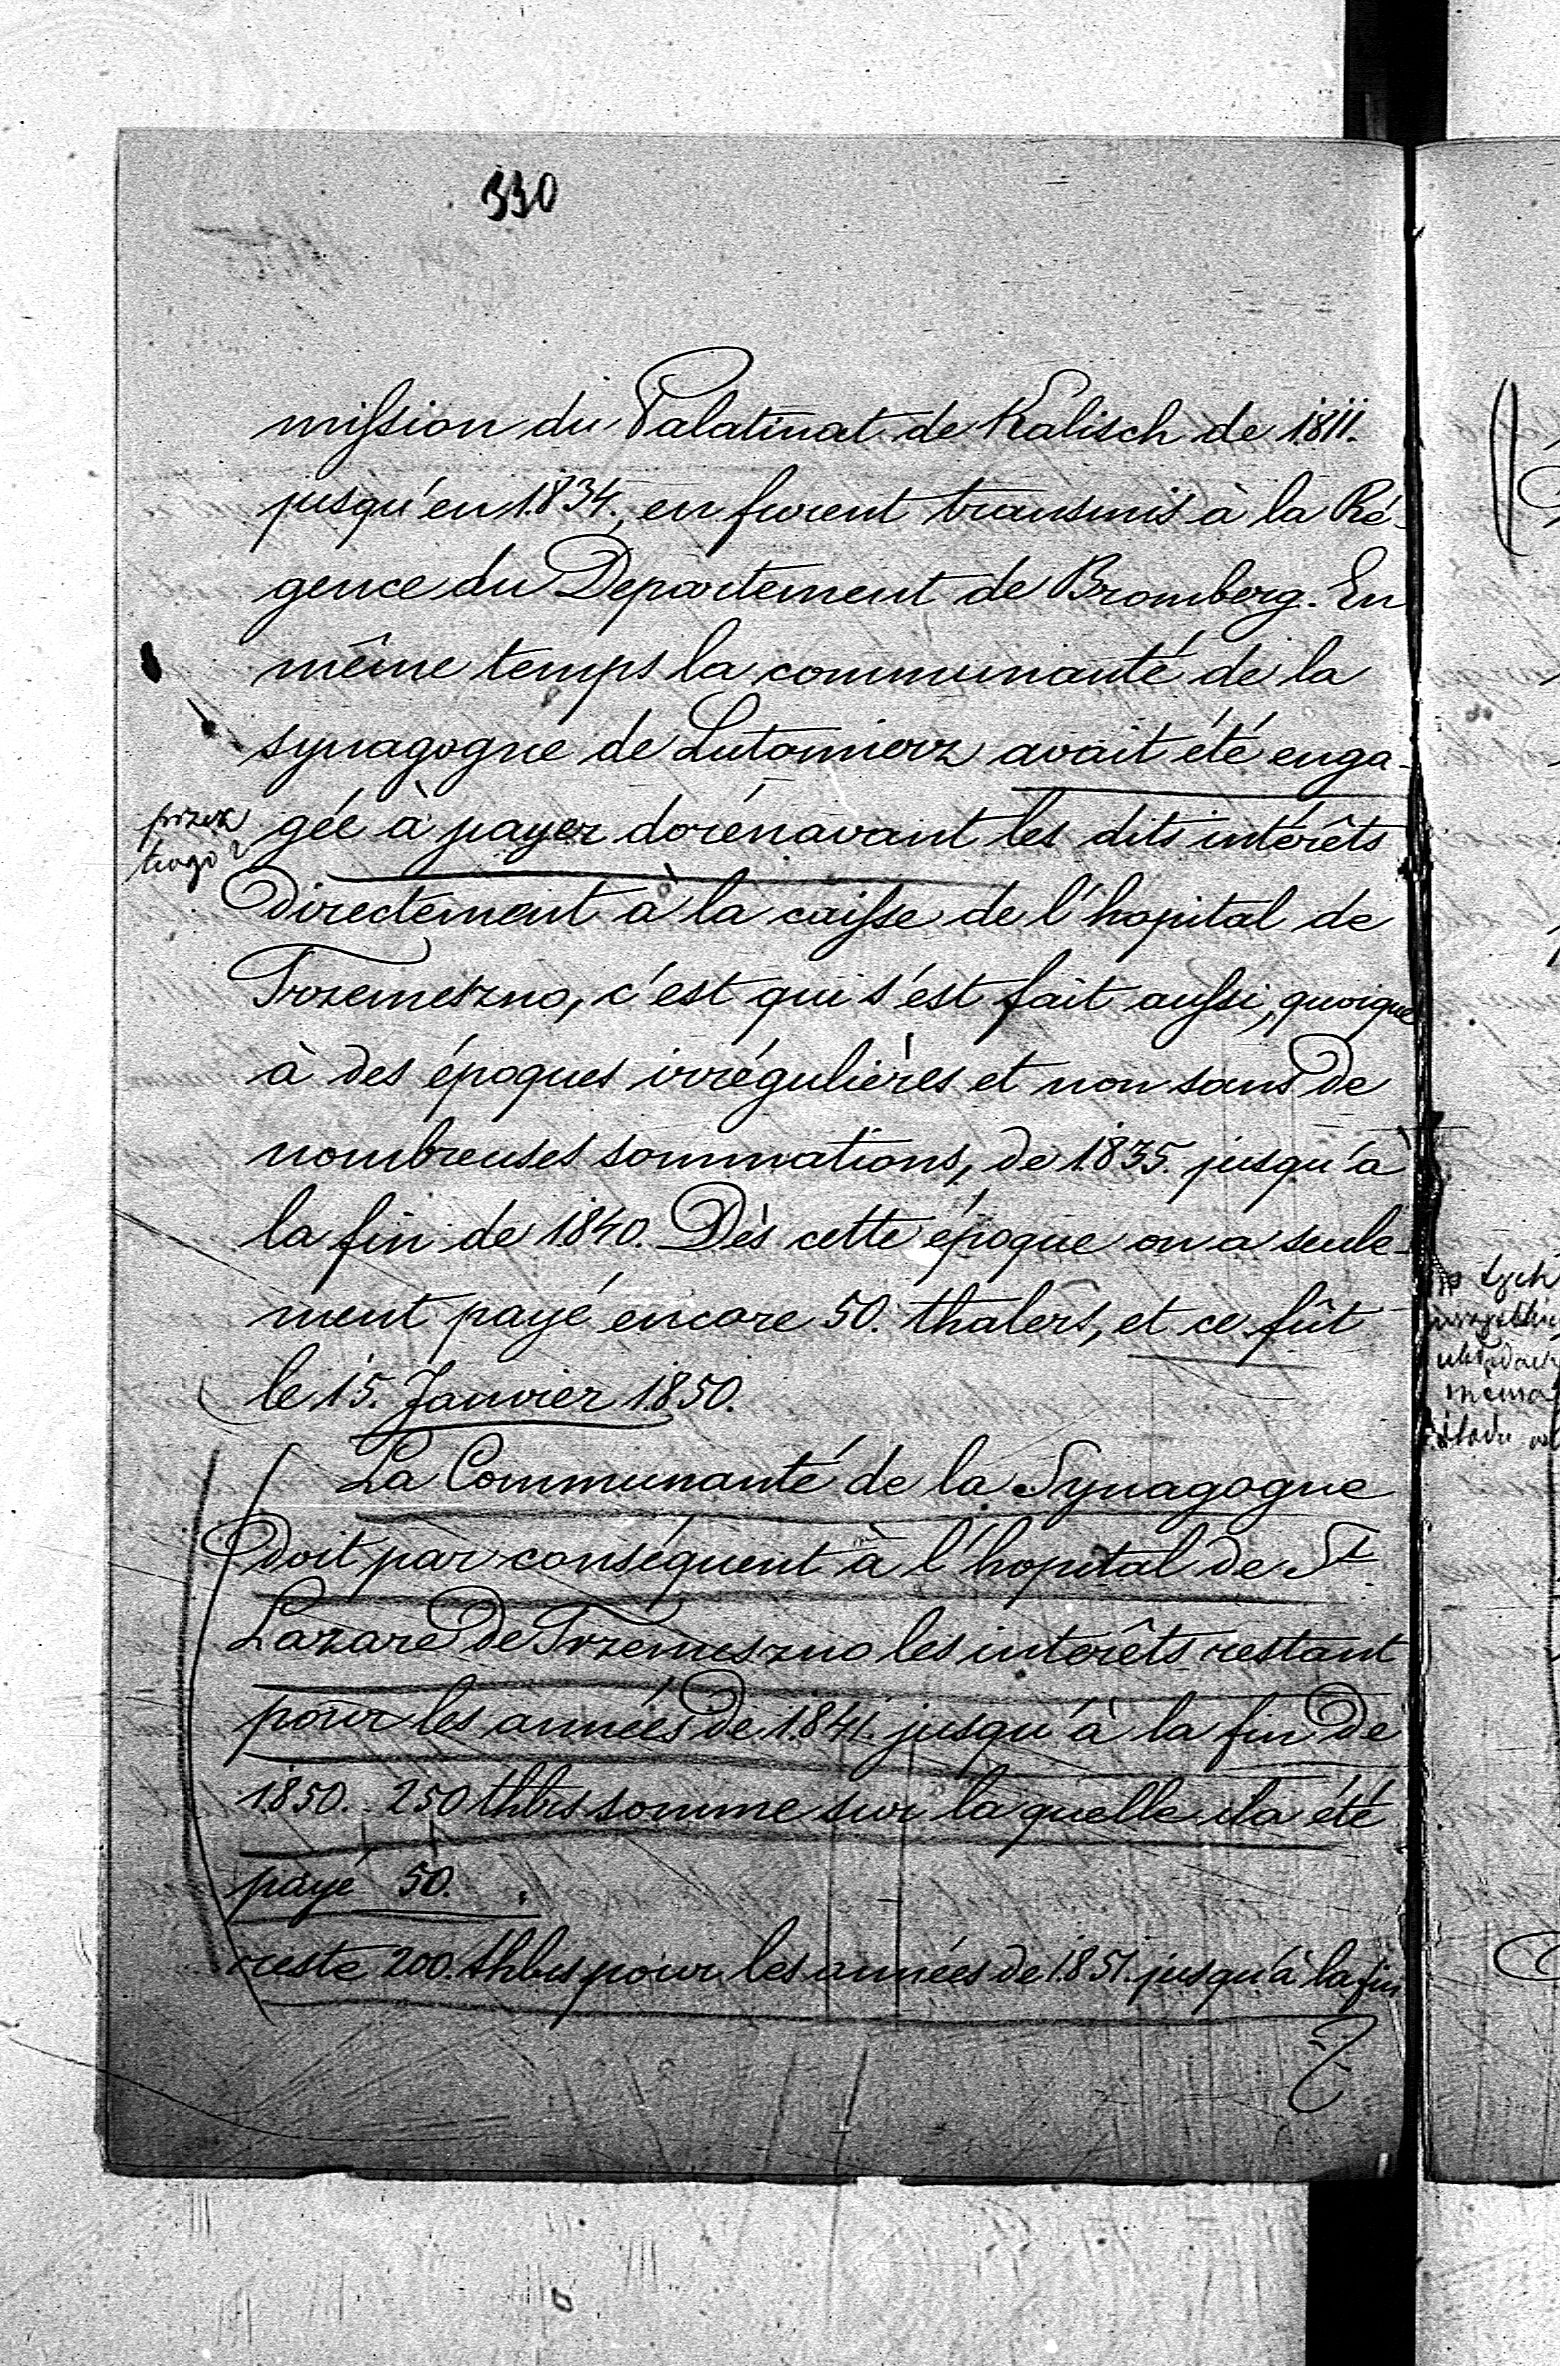 330
mission du Palatinat de Kalisch de 1811.
jusqu'en 1834., en furent transmis à la Ré-
gence du Departement de Bromberg. En
même temps la communauté de la
synagogue de Lutomierz avait été enga-
przez
kogo?
gée à payer dorénavant les dits intérêts
directement à la caisse de l'hopital de
Trzemeszno, c'est qui s'est fait aussi, quoique
à des époques irrégulières et non sans de
nombreuses sommations, de 1835. jusqu'à
la fin de 1840. Dès cette époque on a seule-
ment payé encore 50. thalers, et ce fût
le 15. Janvier 1850.
La Communauté de la Synagogue
doit par conséquent à l'hopital de St
Lazare de Trzemeszno les intérêts restant
pour les années de 1841. jusqu'à la fin de
1850. 250 thlrs somme sur la quelle il a été
payé 50.
reste 200. thlrs pour les années de 1851. jusqu'à la fin